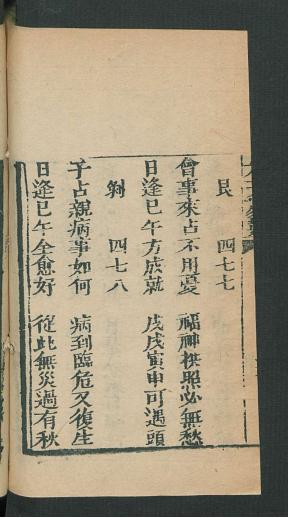 艮 四七七
會事來占不用憂 福神拱照必無愁
日逢巳午方成就 戊戌寅申可遇頭
剝 四七八
子占親病事如何 病到臨危又復生
日逢巳午全愈好 從此無災過有秋